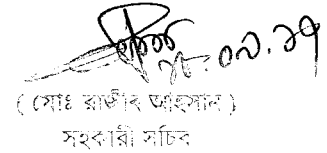 (মোঃ রাজীব আহসান)
সহকারী সচিব